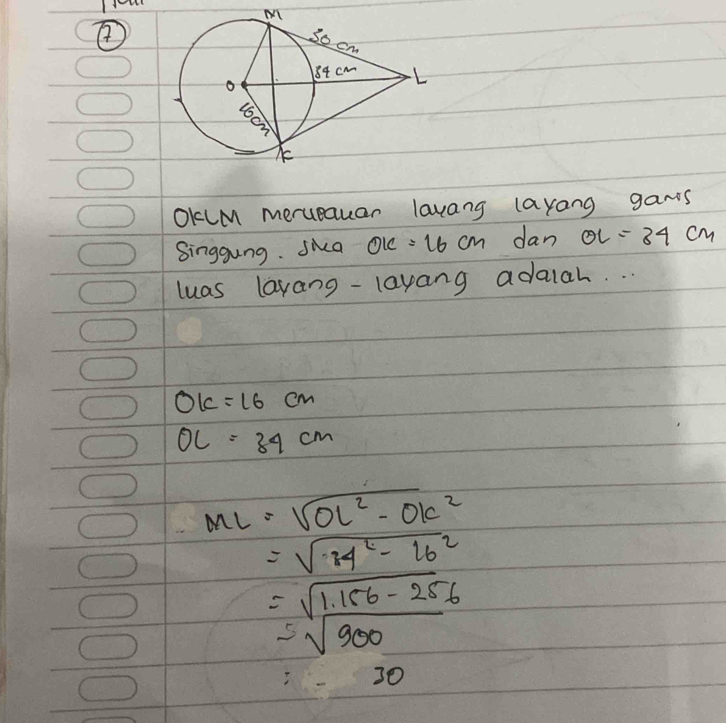 7
M
30 cm
34 cm
O
L
16 cm
K
OKLM merupakan layang layang garis
singgung. Jika OK = 16 cm dan OL = 34 cm
luas layang-layang adalah...
OK = 16 cm
OL = 34 cm
ML = √OL² - OK²
= √34² - 16²
= √1.156 - 256
= √900
= 30